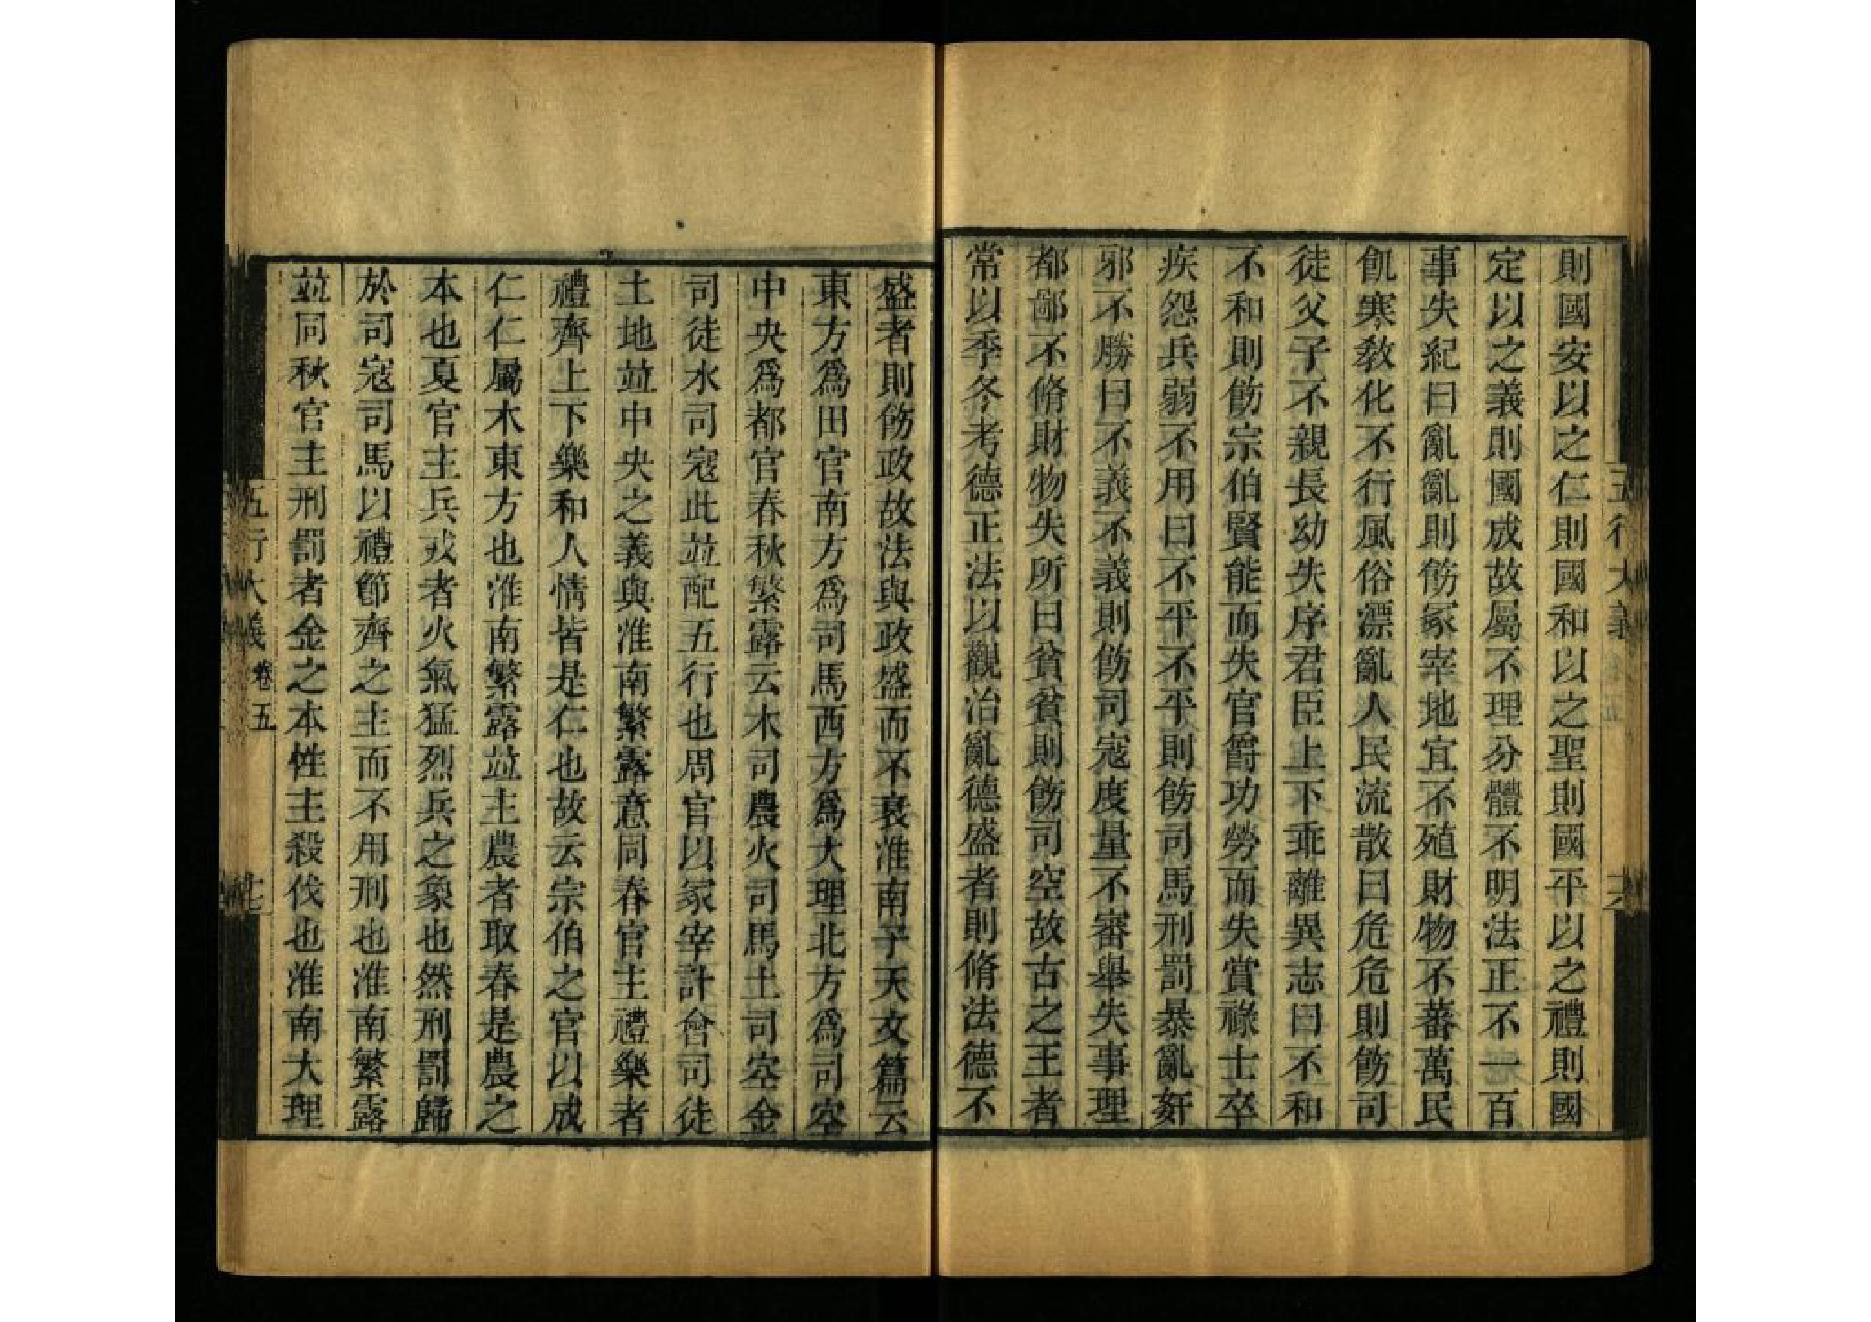 則國安以之仁則國和以之聖則國平以之禮則國
定以之義則國成故屬不理分體不明法正不一百
事失紀曰亂亂則飭冢宰地宜不殖財物不蕃萬民
飢寒敎化不行風俗漂亂人民流散曰危危則飭司
徒父子不親長幼失序君臣上下乖離異志曰不和
不和則飭宗伯賢能而失官爵功勞而失賞祿士卒
疾怨兵弱不用曰不平不平則飭司馬刑罰暴亂姦
邪不勝曰不義不義則飭司寇度量不審舉失事理
都鄙不脩財物失所曰貧貧則飭司空故古之王者
常以季冬考德正法以觀治亂德盛者則脩法德不
盛者則飭政故法與政盛而不衰淮南子天文篇云
東方爲田官南方爲司馬西方爲大理北方爲司空
中央爲都官春秋繁露云木司農火司馬土司空金
司徒水司寇此竝配五行也周官以冢宰計會司徒
土地竝中央之義與淮南繁露意同春官主禮樂者
禮齊上下樂和人情皆是仁也故云宗伯之官以成
仁仁屬木東方也淮南繁露竝主農者取春是農之
本也夏官主兵戎者火氣猛烈兵之象也然刑罰歸
於司寇司馬以禮節齊之主而不用刑也淮南繁露
竝同秋官主刑罰者金之本性主殺伐也淮南大理
五行大義 卷五 十七